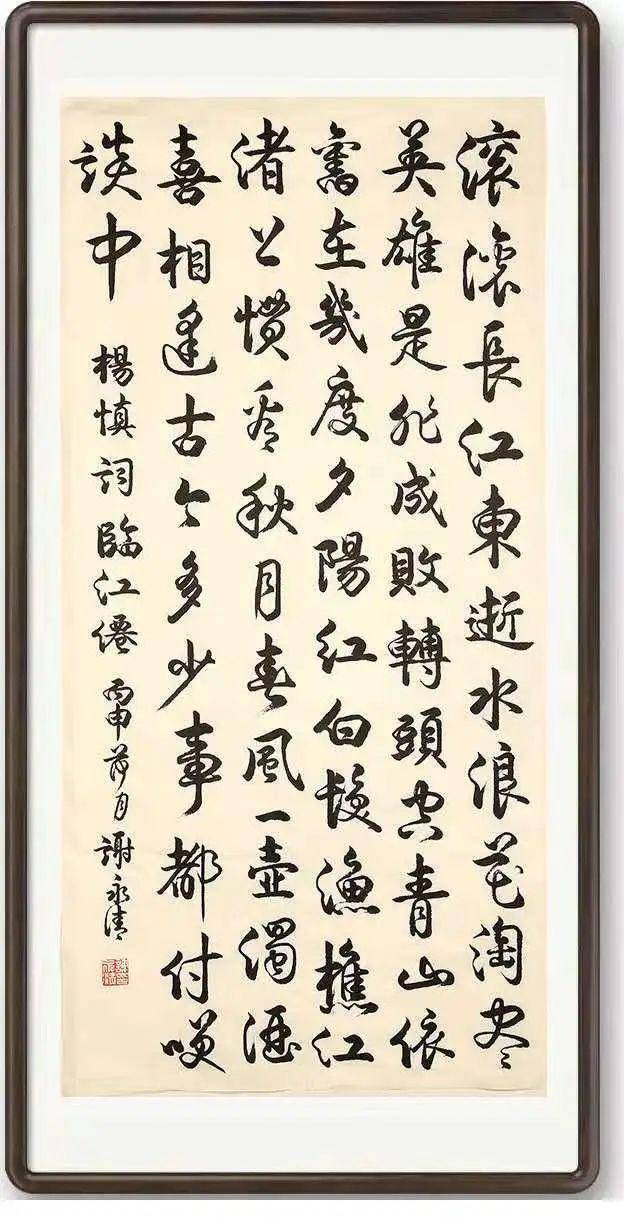 滚滚長江東逝水浪花淘尽
英雄是非成敗轉頭空青山依
舊在幾度夕陽紅白髮漁樵江
渚上慣看秋月春風一壺濁酒
喜相逢古今多少事都付咲
談中 楊慎詞臨江僊 丙申 月 謝永清